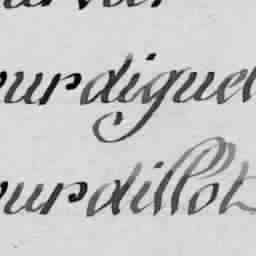 urdiguel
urdillot